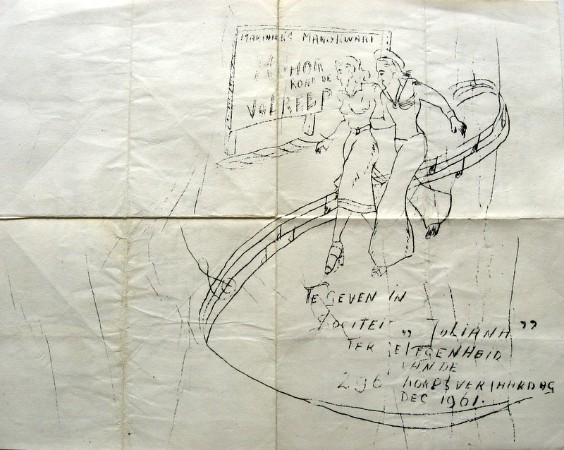 MARINIERS MANOKWARI
HAM
KOMT DE
VALREEP
TE GEVEN IN
SOCITEIT „JULIANA”
TER GELEGENHEID
VAN DE
296 KORPSVERJAARDAG
DEC 1961.